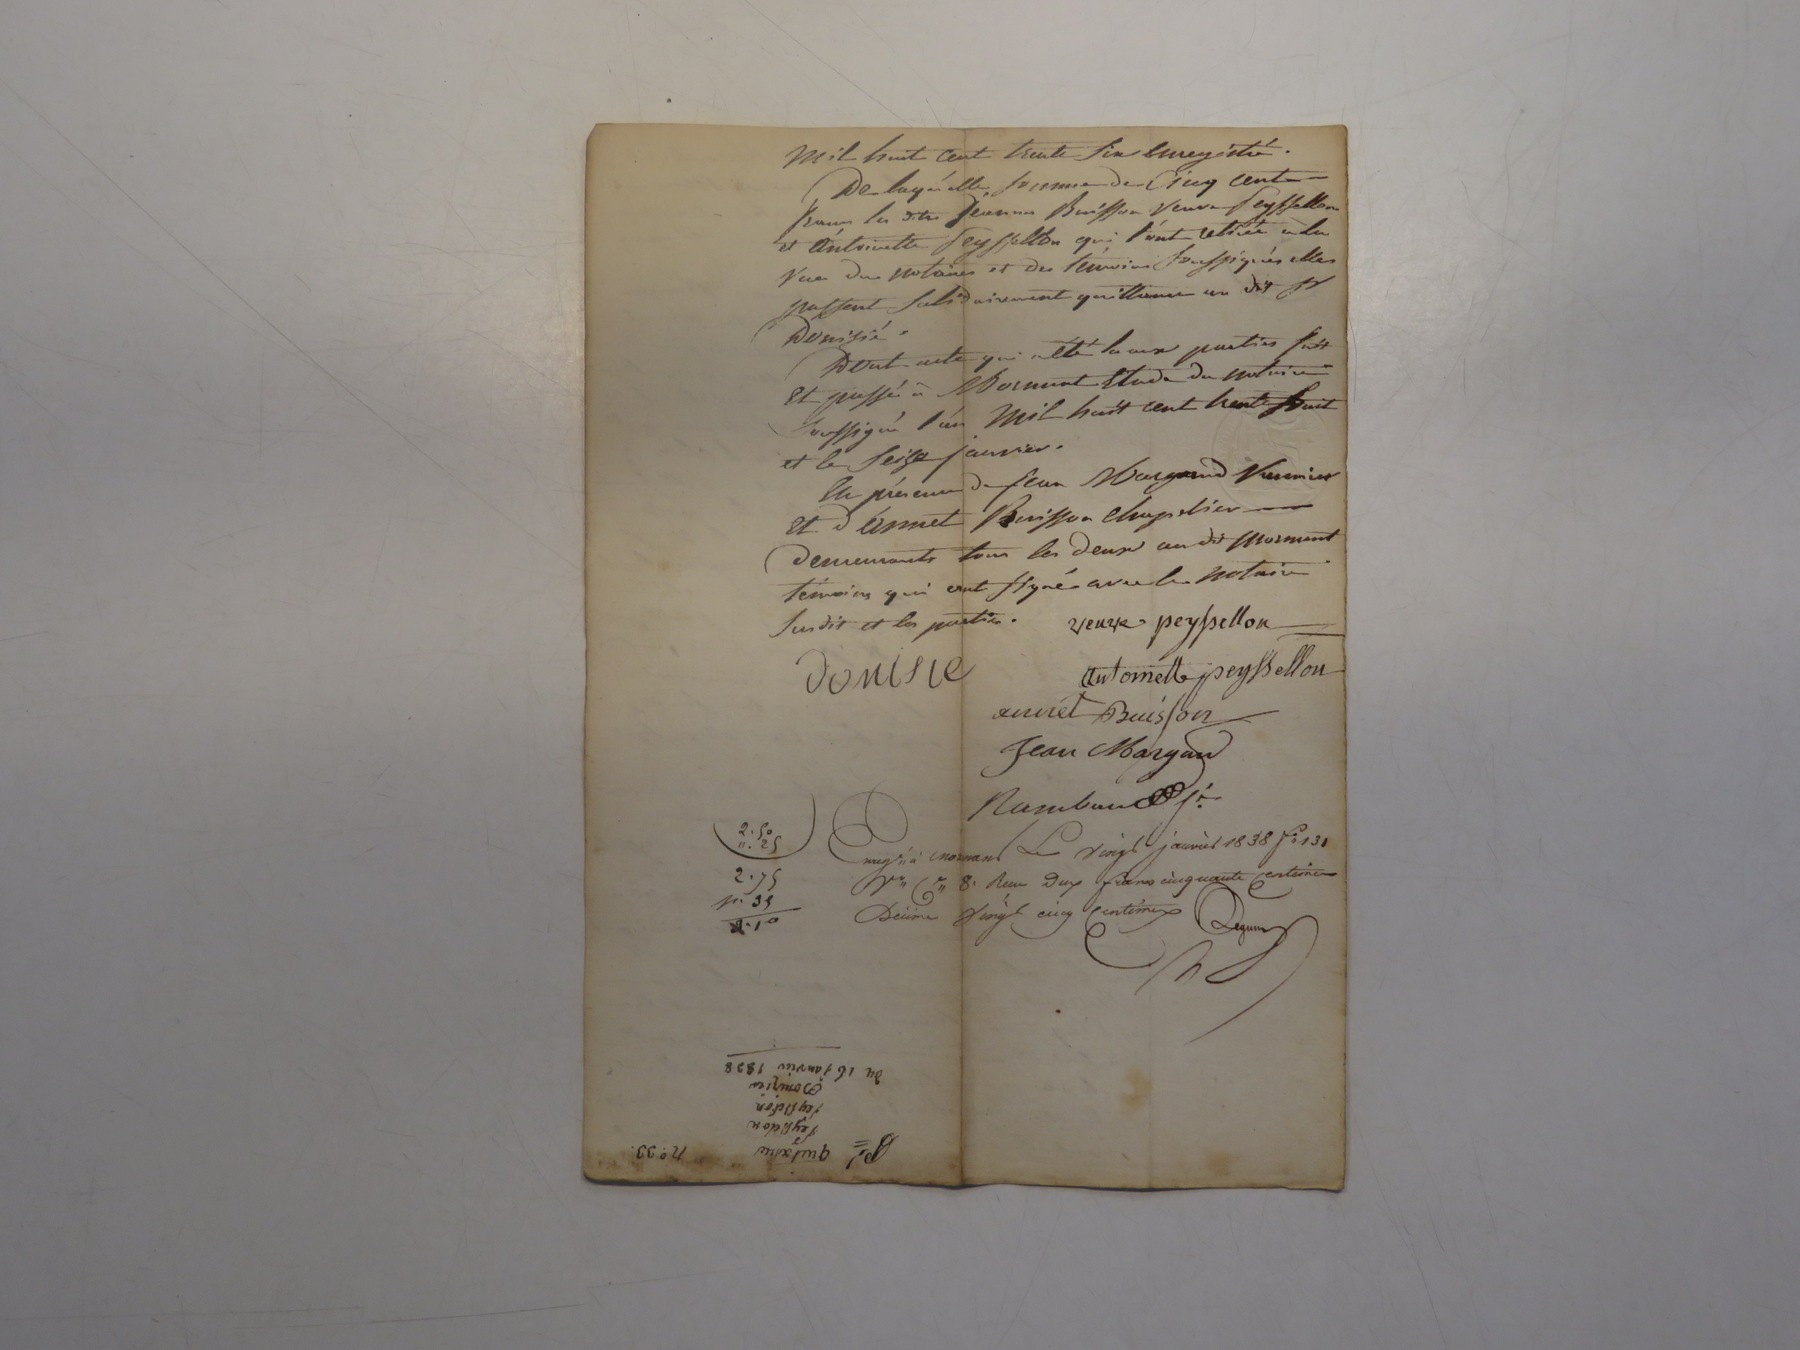 mil huit cent trente six enregistré.
De laquelle somme de Cinq cent
francs les dites Jeanne Buisson veuve Peyssellon
et Antoinette Peyssellon qui l'ont retirée à la
vue du notaire et des témoins soussignés elles
passent solidairement quittance au dit Sr
Donisié.
Dont acte qui a été lu aux parties fait
et passé à Mornant Etude du notaire
soussigné l'an mil huit cent trente huit
et le seize janvier.
En présence de Jean Margand
et d'annet Buisson chapelier
demeurants tous les deux au dit Mornant
témoins qui ont signés avec le notaire
susdit et les parties.
veuve peyssellon
donisie
antoinette peyssellon
annet Buisson
Jean Margand
Rambaud
2.50
". 25
2.75
". 35
3.10
Enreg.ré à Mornant Le vingt janvier 1838 f° 131
8. Reçu deux francs cinquante centimes
Décime vingt cinq centimes
n°. 33.
quittance
Peyssellon
Peyssellon
Donisier
Du 16 Janvier 1838